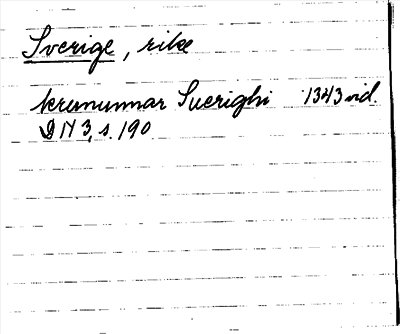 Sverige, rike
krununnar Suerighi 1343 vid.
DN 3, s. 190